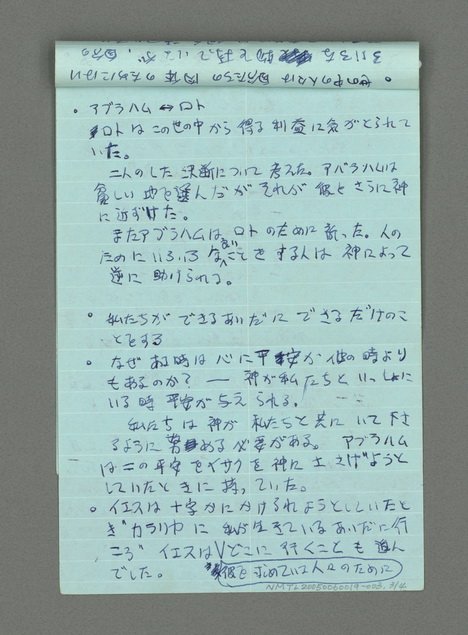 。世の中の人々は自分たちの肉体のためにはい
ろいろな
。アブラハム ↔ ロト
ロトはこの世の中から得る利益に気がとられて
いた。
二人のした決断について考えた。アバラハムは
貧しい地を選んだがそれが彼をさらに神
に近ずけた。
またアブラハムは、ロトのために祈った。人の
ためにいろいろな良いことをする人は神によって
逆に助けられる。
。私たちができるあいだにできるだけのこ
とをする
。なぜある時は心に平安が他の時より
もあるのか? — 神が私たちといっしょに
いる時平安が与えられる。
私たちは神が私たちと共にいて下さ
るように努める必要がある。アブラハム
はこの平安をイサクを神にささげようと
していたときに持っていた。
。イエスは十字かにかけられようとしていたと
き“カラリヤに私が生きているあいだに行
こう”イエスはVどこに行くことも選ん
でした。 彼を求めている人々のために
NMTL20050060019-003, 3/4